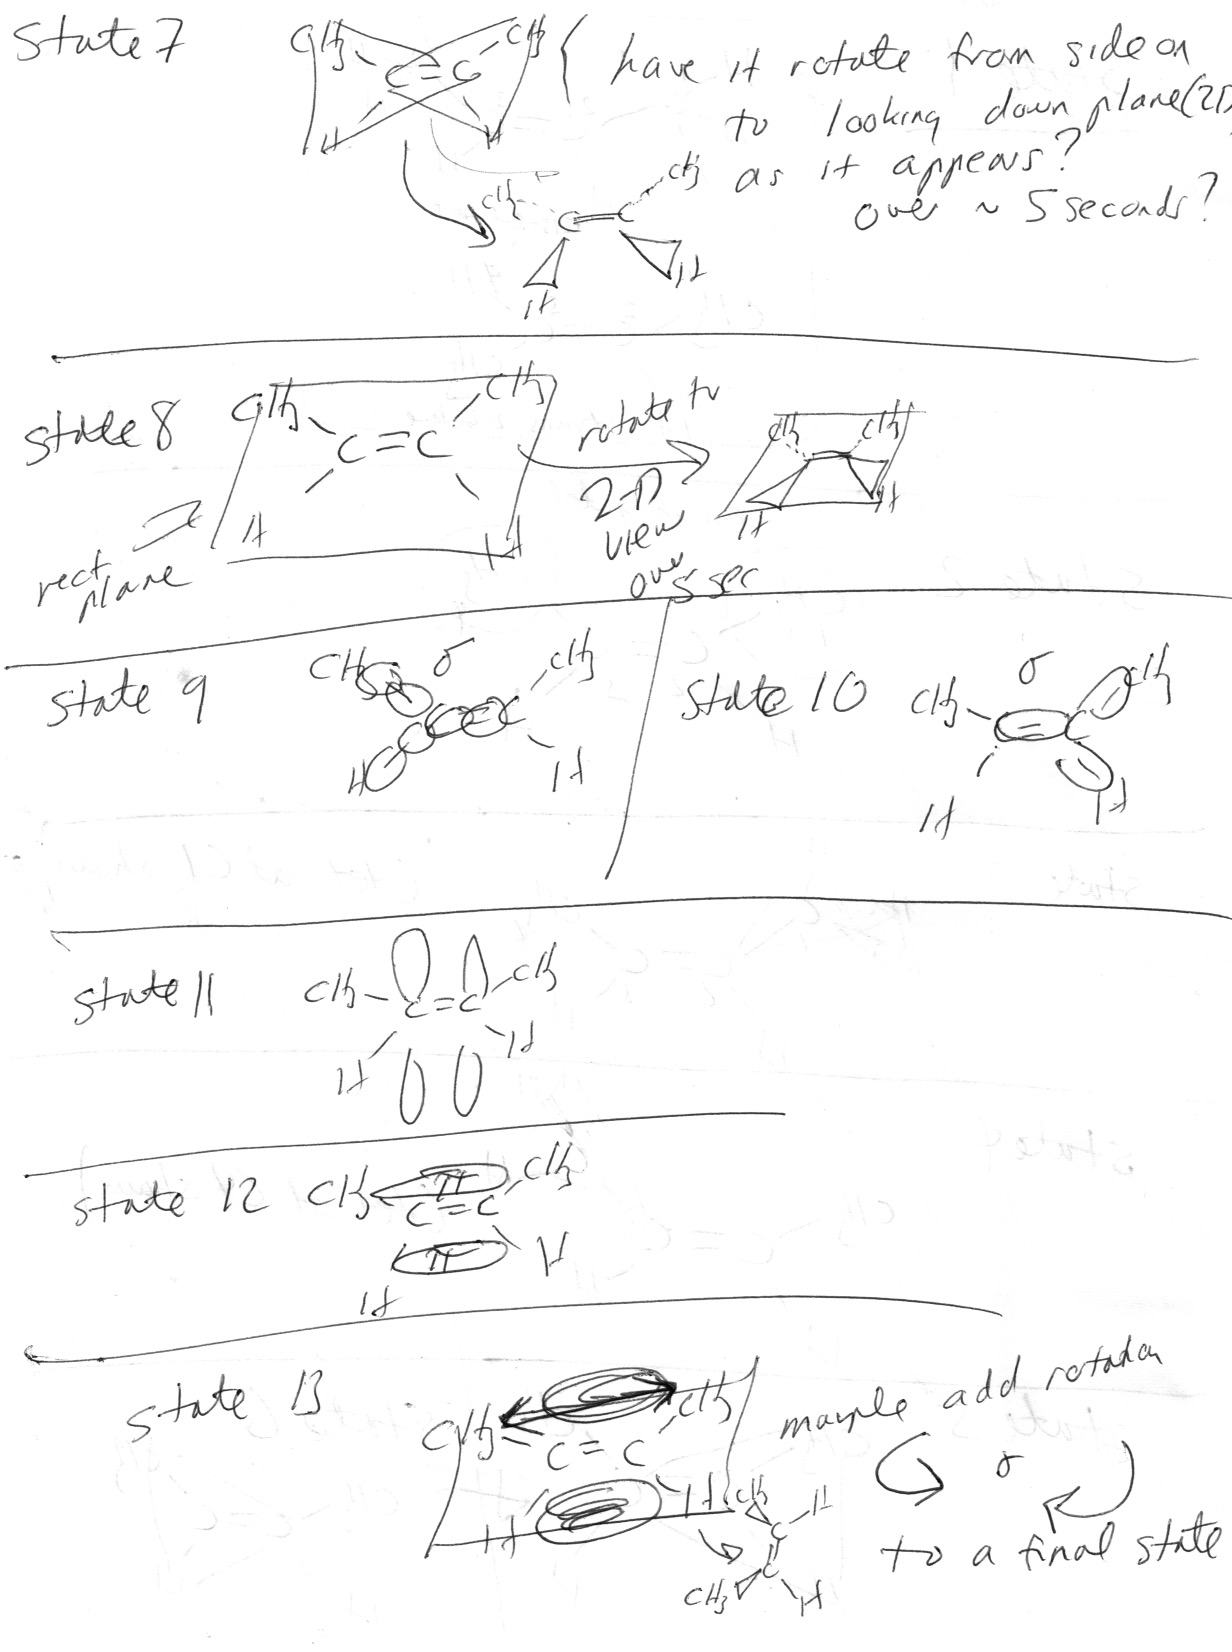 State 7
CH3 CH3
C=C
H H
{ have it rotate from side on
to looking down plane (2D
as it appears?
over ~ 5 seconds?
CH3 CH3
C=C
H H
state 8
CH3 CH3
C=C
H H
rect plane
rotate to
2-D
view
over
5 sec
CH3 CH3
H H
State 9
CH3 σ CH3
C=C
H H
State 10
CH3 σ CH3
= C
H H
state 11
CH3 CH3
C=C
H H
state 12
CH3 π CH3
C=C
π
H H
state 13
CH3 CH3
C=C
H H
CH3 C H
CH3 C H
maybe add rotation
σ
to a final state